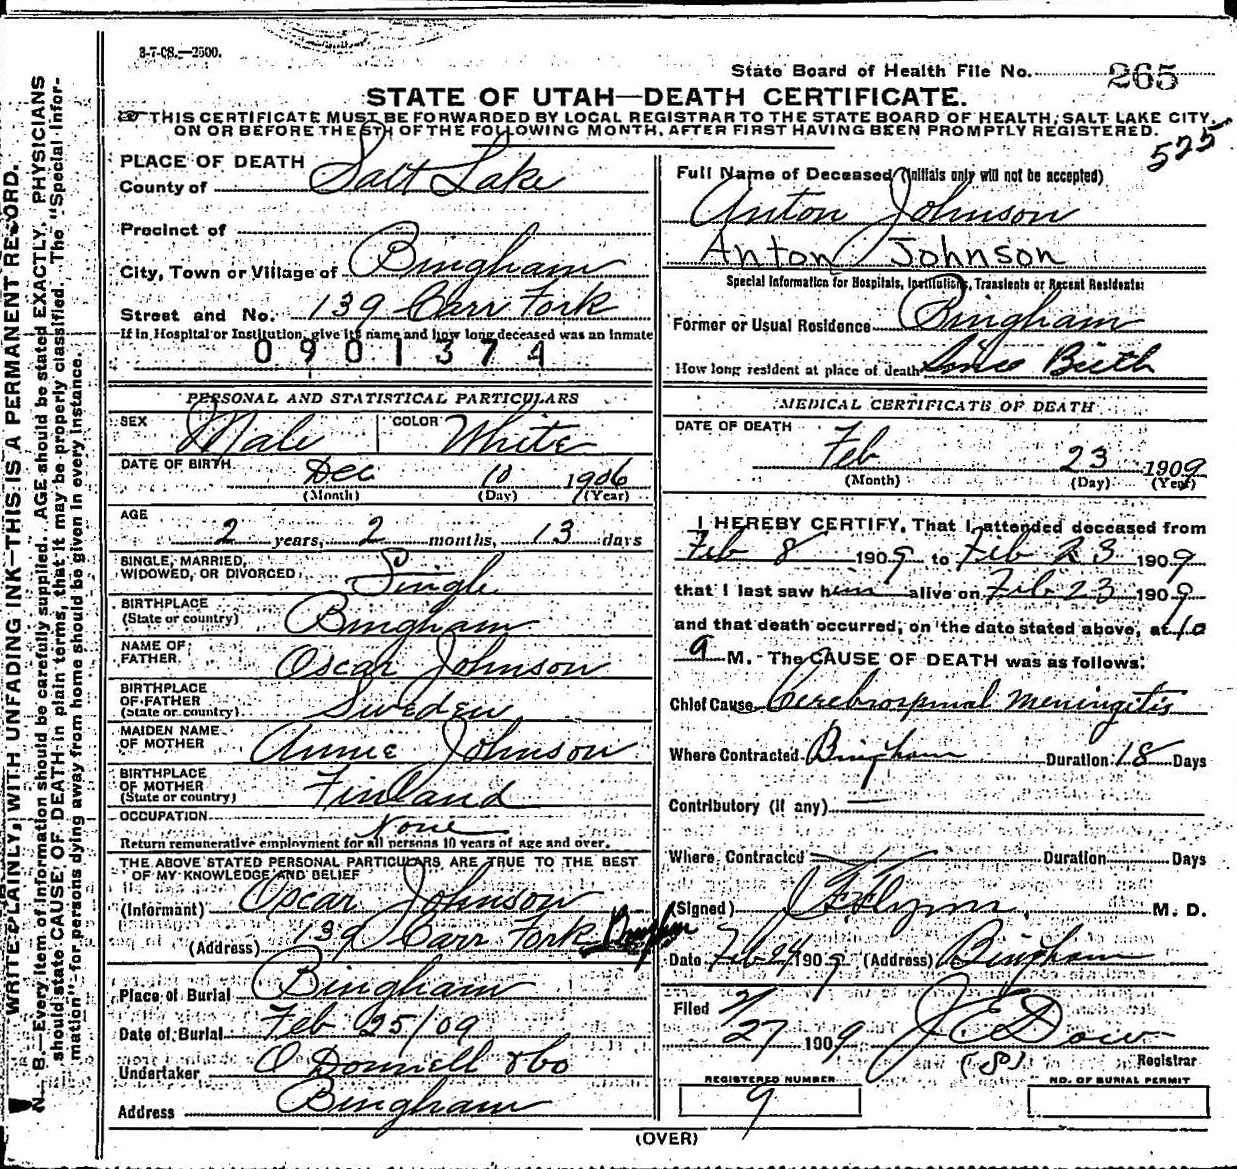 3-7-08.—2500.
State Board of Health File No. 265
STATE OF UTAH—DEATH CERTIFICATE.
THIS CERTIFICATE MUST BE FORWARDED BY LOCAL REGISTRAR TO THE STATE BOARD OF HEALTH, SALT LAKE CITY,
ON OR BEFORE THE 5TH OF THE FOLLOWING MONTH, AFTER FIRST HAVING BEEN PROMPTLY REGISTERED.
525
WRITE PLAINLY, WITH UNFADING INK—THIS IS A PERMANENT RECORD.
N. B.—Every item of information should be carefully supplied. AGE should be stated EXACTLY. PHYSICIANS
should state CAUSE OF DEATH in plain terms, that it may be properly classified. The "Special Infor-
mation" for persons dying away from home should be given in every instance.
PLACE OF DEATH
County of Salt Lake
Precinct of
City, Town or Village of Bingham
Street and No. 139 Carr Fork
If in Hospital or Institution, give its name and how long deceased was an inmate
0901374
PERSONAL AND STATISTICAL PARTICULARS
SEX Male COLOR White
DATE OF BIRTH Dec 10 1906
(Month) (Day) (Year)
AGE
2 years, 2 months, 13 days
SINGLE, MARRIED,
WIDOWED, OR DIVORCED Single
BIRTHPLACE
(State or country) Bingham
NAME OF
FATHER Oscar Johnson
BIRTHPLACE
OF FATHER
(State or country) Sweden
MAIDEN NAME
OF MOTHER Annie Johnson
BIRTHPLACE
OF MOTHER
(State or country) Finland
OCCUPATION
None
Return remunerative employment for all persons 10 years of age and over.
THE ABOVE STATED PERSONAL PARTICULARS ARE TRUE TO THE BEST
OF MY KNOWLEDGE AND BELIEF
(Informant) Oscar Johnson
(Address) 139 Carr Fork Bingham
Place of Burial Bingham
Date of Burial Feb 25/09
Undertaker O Donnell & Co
Address Bingham
Full Name of Deceased (Initials only will not be accepted)
Anton Johnson
Anton Johnson
Special Information for Hospitals, Institutions, Transients or Recent Residents:
Former or Usual Residence Bingham
How long resident at place of death Since Birth
MEDICAL CERTIFICATE OF DEATH
DATE OF DEATH
Feb 23 1909
(Month) (Day) (Year)
I HEREBY CERTIFY, That I attended deceased from
Feb 8 1909 to Feb 23 1909
that I last saw him alive on Feb 23 1909
and that death occurred, on the date stated above, at 10
a M. The CAUSE OF DEATH was as follows:
Chief Cause Cerebrospinal Meningitis
Where Contracted Bingham Duration 18 Days
Contributory (if any)
Where Contracted Duration Days
(Signed) J F Flynn. M. D.
Date Feb 24 1909 (Address) Bingham
Filed 2/
27 1909 J E Dow
Registrar
REGISTERED NUMBER
9
NO. OF BURIAL PERMIT
(OVER)